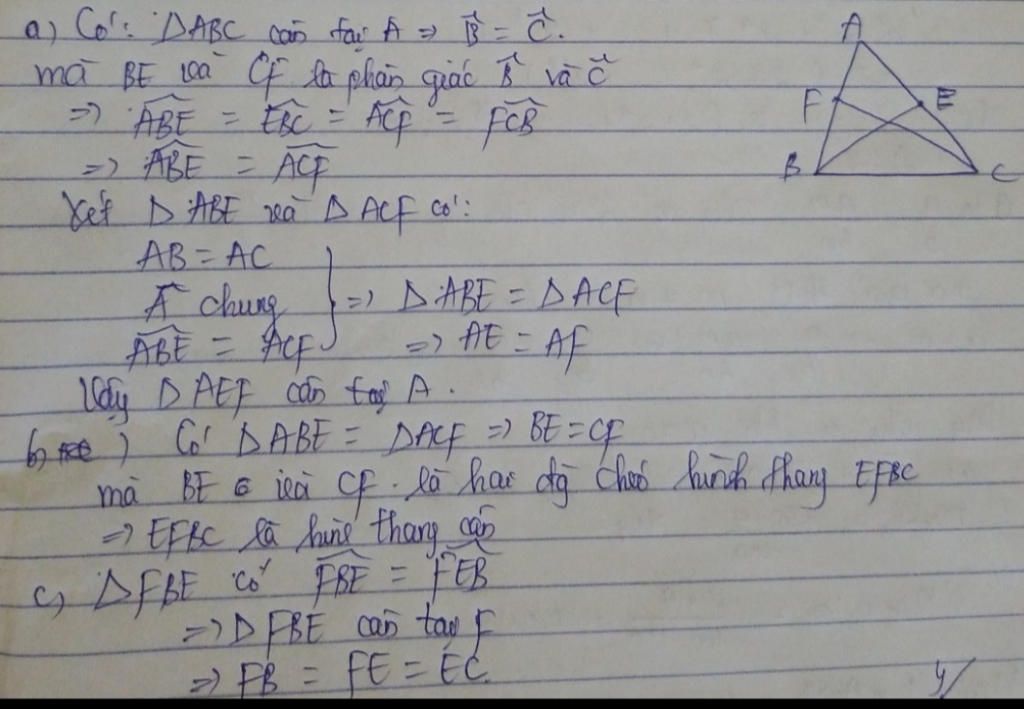 a) Có: ΔABC cân tại A => B̂ = Ĉ.
mà BE và CF là phân giác B̂ và Ĉ
=> ABE = EBC = ACF = FCB
=> ABE = ACF
Xét ΔABE và ΔACF có:
AB = AC
Â chung => ΔABE = ΔACF
ABE = ACF => AE = AF
Vậy ΔAEF cân tại A.
b) ) Có ΔABE = ΔACF => BE = CF
mà BE và CF là hai đg chéo hình thang EFBC
=> EFBC là hình thang cân
c) ΔFBE có FBE = FEB
=> ΔFBE cân tại F
=> FB = FE = EC.
A
F
E
B
C